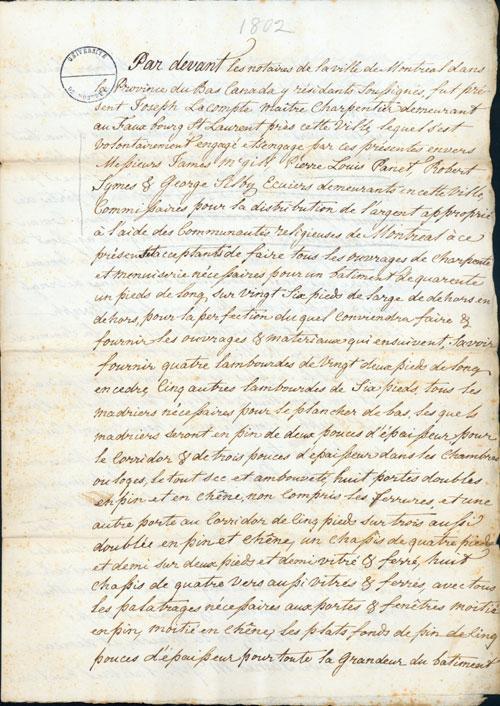 1802
UNIVERSITÉ
Par devant les notaires de la ville de Montreal dans
la Province du Bas Canada y résidants Soussignés, fut pré
sent Joseph Lacompte maitre Charpentier demeurant
au Fauxbourg St Laurent près cette Ville, lequel s'est
volontairement engagé et s'engage par ces presentes envers
Messieurs James McGill Pierre Louis Panet, Robert
Symes & George Selby Ecuiers demeurants en cette Ville,
Commissaires pour la distribution de l'argent approprié
à l'aide des Communautés religieuses de Montreal à ce
présents acceptants de faire tous les ouvrages de Charpente
et menuiserie nécessaires pour un batiment de quarente
un pieds de long, sur vingt Six pieds de large de dehors en
dehors, pour la perfection du quel conviendra faire &
fournir les ouvrages & materiaux qui ensuivent, Savoir
fournir quatre lambourdes de Vingt deux pieds de long
en cedre, Cinq autres lambourdes de Six pieds, tous les
madriers nécessaires pour le plancher de bas les quels
madriers seront en pin de deux pouces d'épaisseur pour
le Corridor & de trois pouces d'épaisseur dans les Chambres
ou loges, le tout sec et ambouveté, huit portes doubles
en pin et en chêne, non compris les ferrures, et une
autre porte au Corridor de Cinq pieds sur trois aussi
doublée en pin et Chêne, un chassis de quatre pieds
et demi sur deux pieds et demi vitré & ferré, huit
chassis de quatre vers aussi vitrés & ferrés, avec tous
les nécessaires aux portes & fenêtres moitié
en pin, moitié en Chêne, les plats fonds de pin de Cinq
pouces d'épaisseur pour toute la Grandeur du batiment